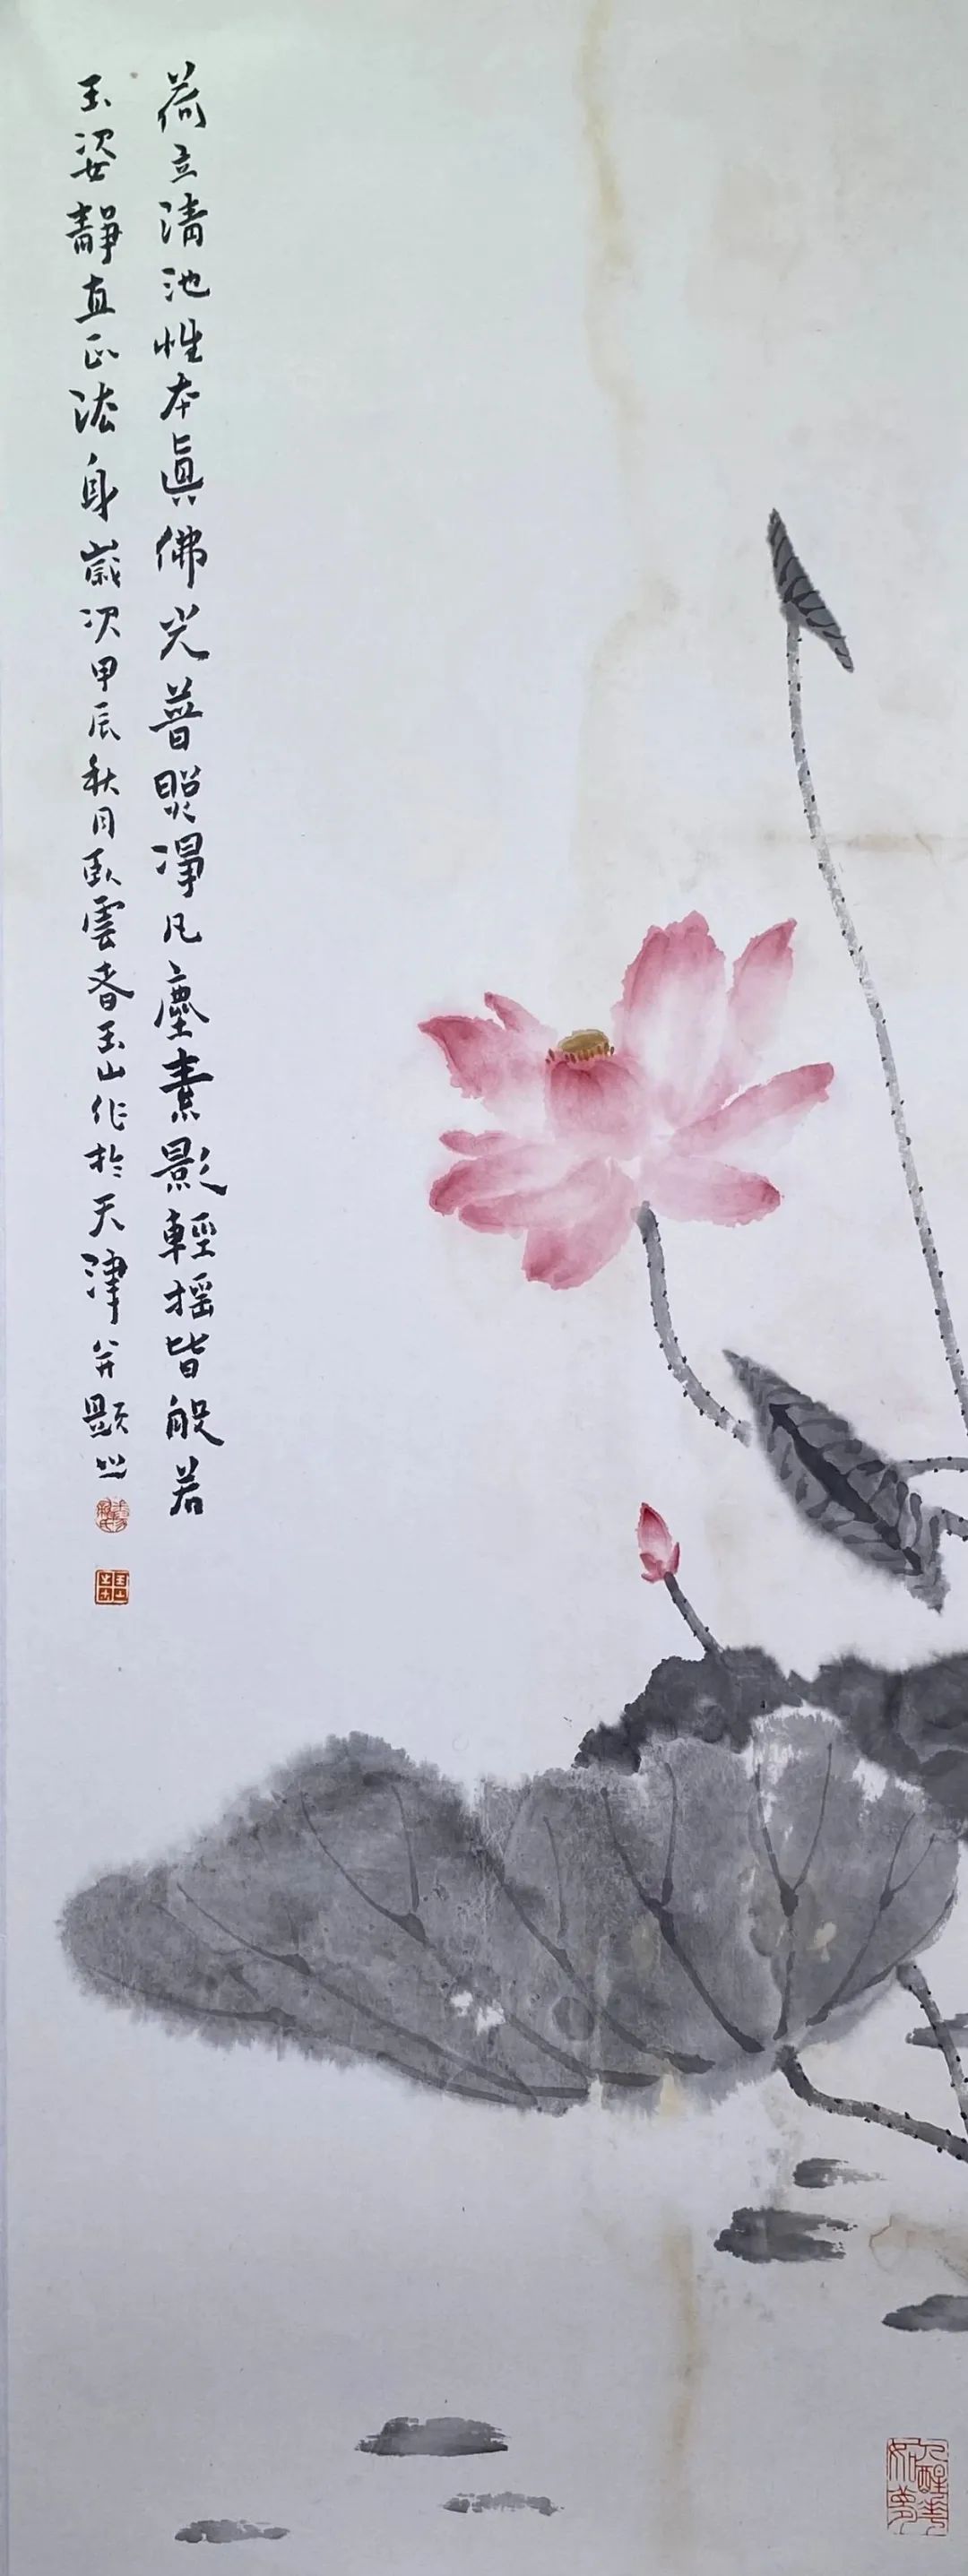 荷立清池性本眞佛光普照淨凡塵素影輕搖皆般若
玉姿靜直正法身歲次甲辰秋月臥雲者玉山作於天津并題
人醒花如夢